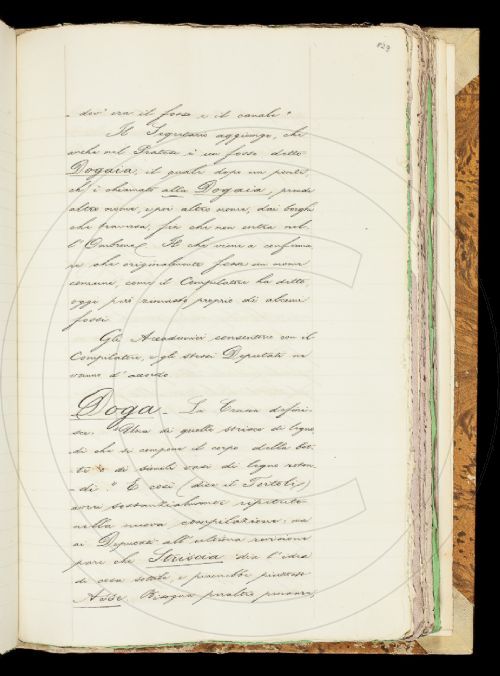 829
dov' era il fosso e il canale."
Il Segretario aggiunge, che
anche nel Pratese è un fosso detto
Dogaia, il quale dopo un ponte,
ch' è chiamato alla Dogaia, prende
altro nome, e poi altro nome, dai borghi
che traversa, fin che non entra nel-
l' Ombrone. Il che viene a conferma
re che originalmente fosse un nome
comune, come il Compilatore ha detto,
oggi però rimasto proprio di alcuni
fossi.
Gli Accademici consentono con il
Compilatore, e gli stessi Deputati ne
vanno d' accordo.
Doga - La Crusca defini-
sce: "Una di quelle strisce di legno,
di che si compone il corpo della bot-
te o di simili vasi di legno roton-
di." E così (dice il Tortoli)
avrei sostanzialmente ripetuto
nella nuova compilazione; ma
ai Deputati all' ultima revisione
pare che Striscia dia l' idea
di cosa sottile, e piuttosto
Asse. Bisogna peraltro pensare,